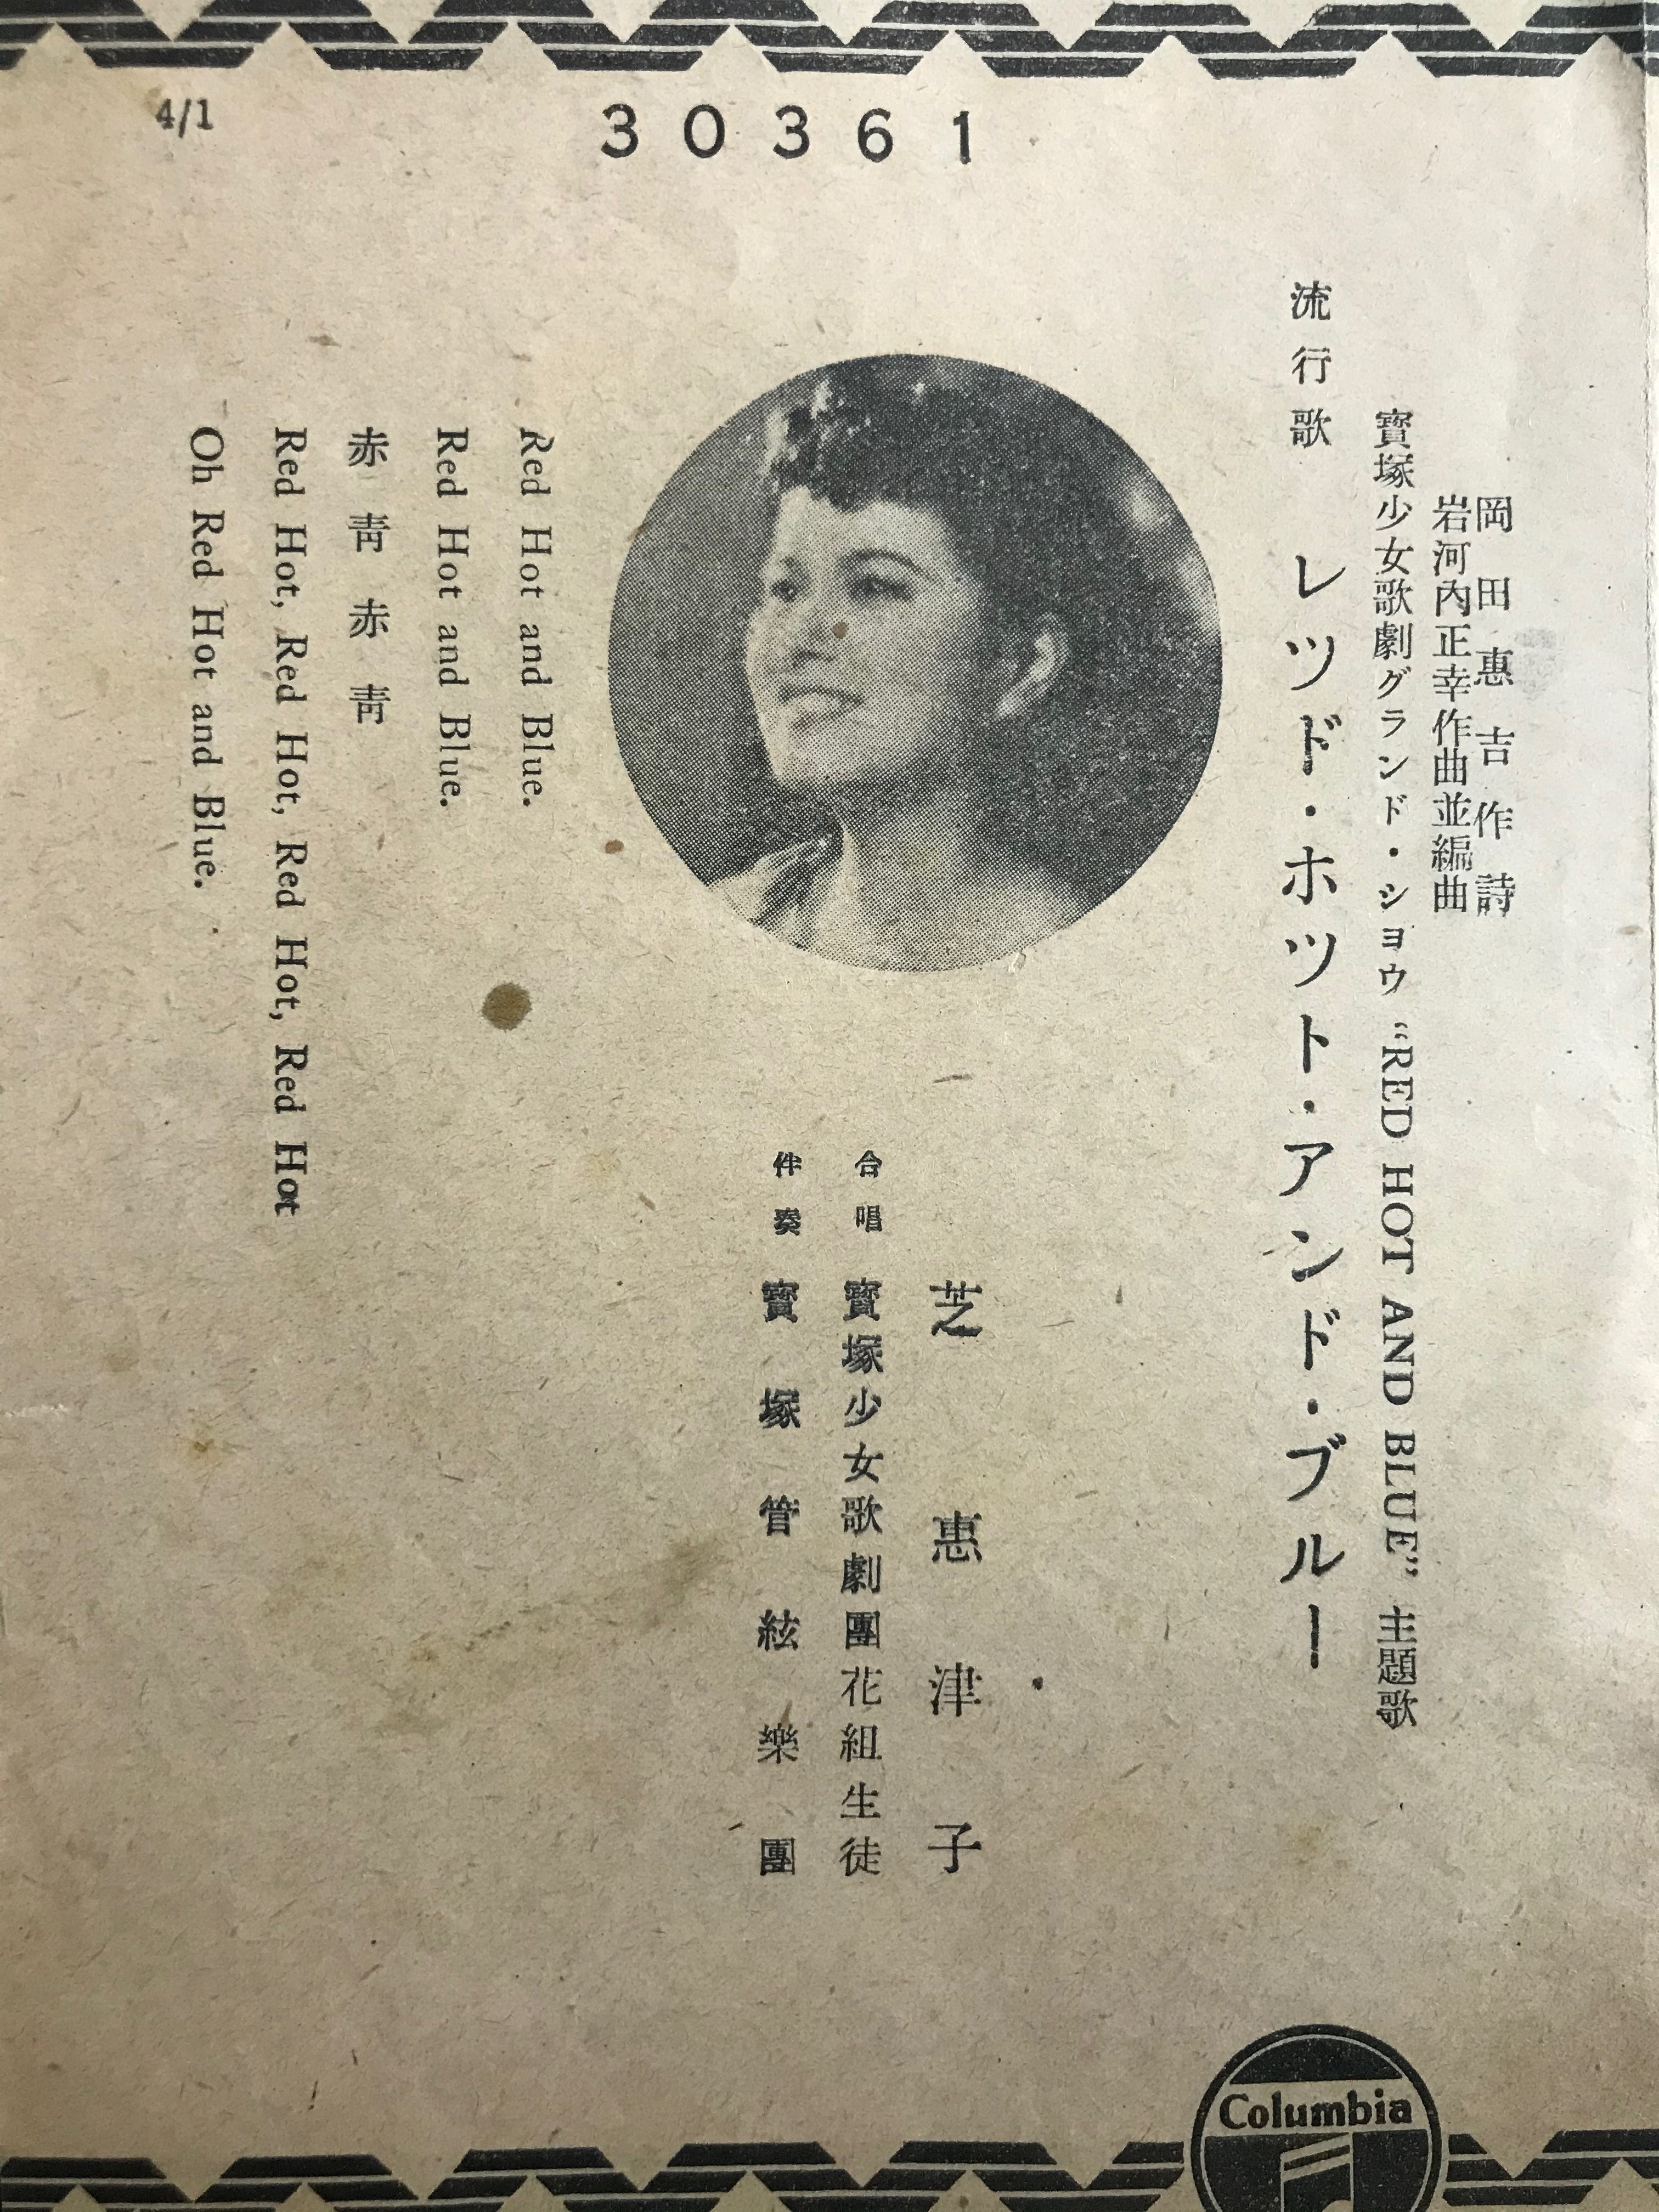 4/1
30361
岡田惠吉作詩
岩河內正幸作曲並編曲
寶塚少女歌劇グランド・ショウ “RED HOT AND BLUE” 主題歌
流行歌 レツド・ホツト・アンド・ブルー
芝惠津子
合唱 寶塚少女歌劇團花組生徒
伴奏 寶塚管絃樂團
Red Hot and Blue.
Red Hot and Blue.
赤靑赤靑
Red Hot, Red Hot, Red Hot, Red Hot
Oh Red Hot and Blue.
Columbia